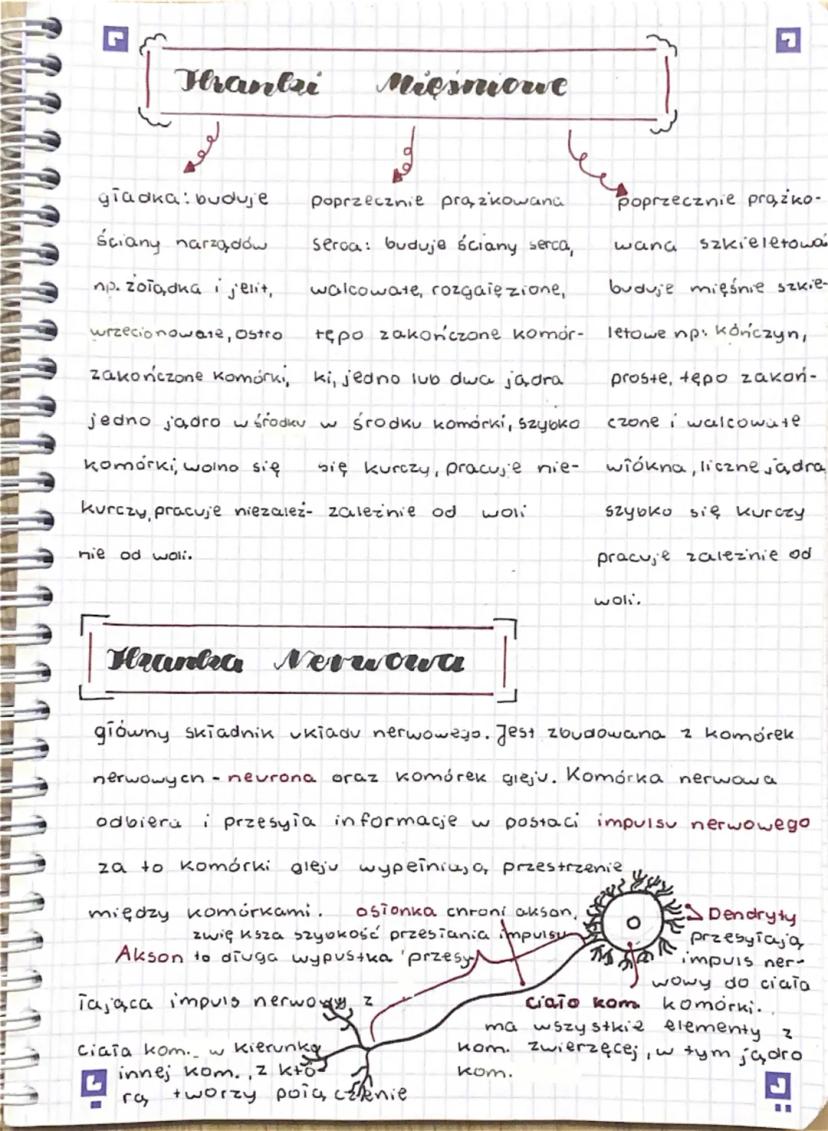 Tkanki Mięśniowe
gładka: buduje
ściany narządów
np. żołądka i jelit,
wrzecionowate, ostro
zakończone komórki,
jedno jądro w środku
komórki, wolno się
kurczy, pracuje niezależ-
nie od woli.
poprzecznie prążkowana
serca: buduje ściany serca,
walcowate, rozgałęzione,
tępo zakończone komór-
ki, jedno lub dwa jądra
w środku komórki, szybko
się kurczy, pracuje nie-
zależnie od woli
poprzecznie prążko-
wana szkieletowa:
buduje mięśnie szkie-
letowe np: kończyn,
proste, tępo zakoń-
czone i walcowate
włókna, liczne jądra
szybko się kurczy
pracuje zależnie od
woli.
Tkanka Nerwowa
główny składnik układu nerwowego. Jest zbudowana z komórek
nerwowych - neurona oraz komórek gleju. Komórka nerwowa
odbiera i przesyła informacje w postaci impulsu nerwowego
za to komórki gleju wypełniają przestrzenie
między komórkami.
osłonka chroni akson,
zwiększa szybkość przesłania impulsu
Akson to długa wypustka przesy
łająca impuls nerwowy z
ciała kom. w kierunku
innej kom., z któ-
rą tworzy połączenie
Dendryty
przesyłają
impuls ner-
wowy do ciała
komórki.
ciało kom.
ma wszystkie elementy z
kom. zwierzęcej, w tym jądro
kom.